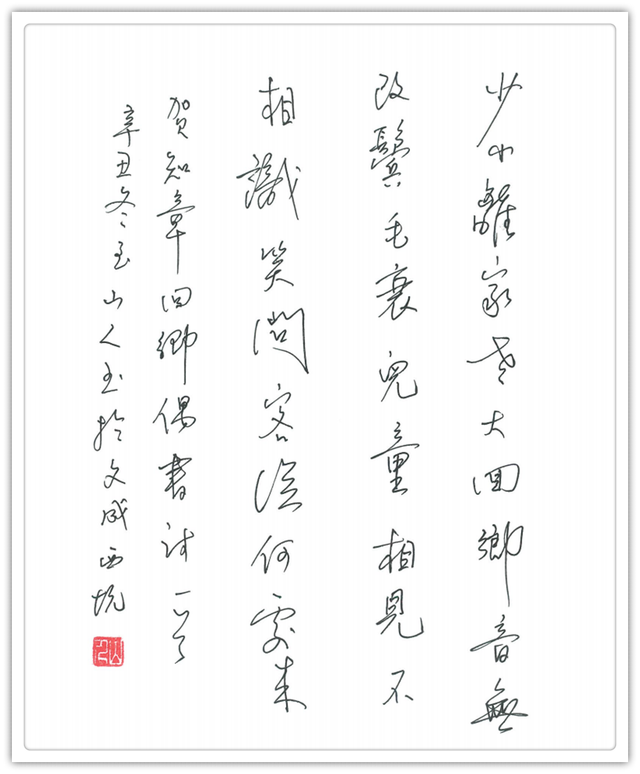 少小離家老大回鄉音無
改鬢毛衰兒童相見不
相識笑問客從何處来
賀知章回鄉偶書詩一首
辛丑冬至山人書於文成西坑
山人